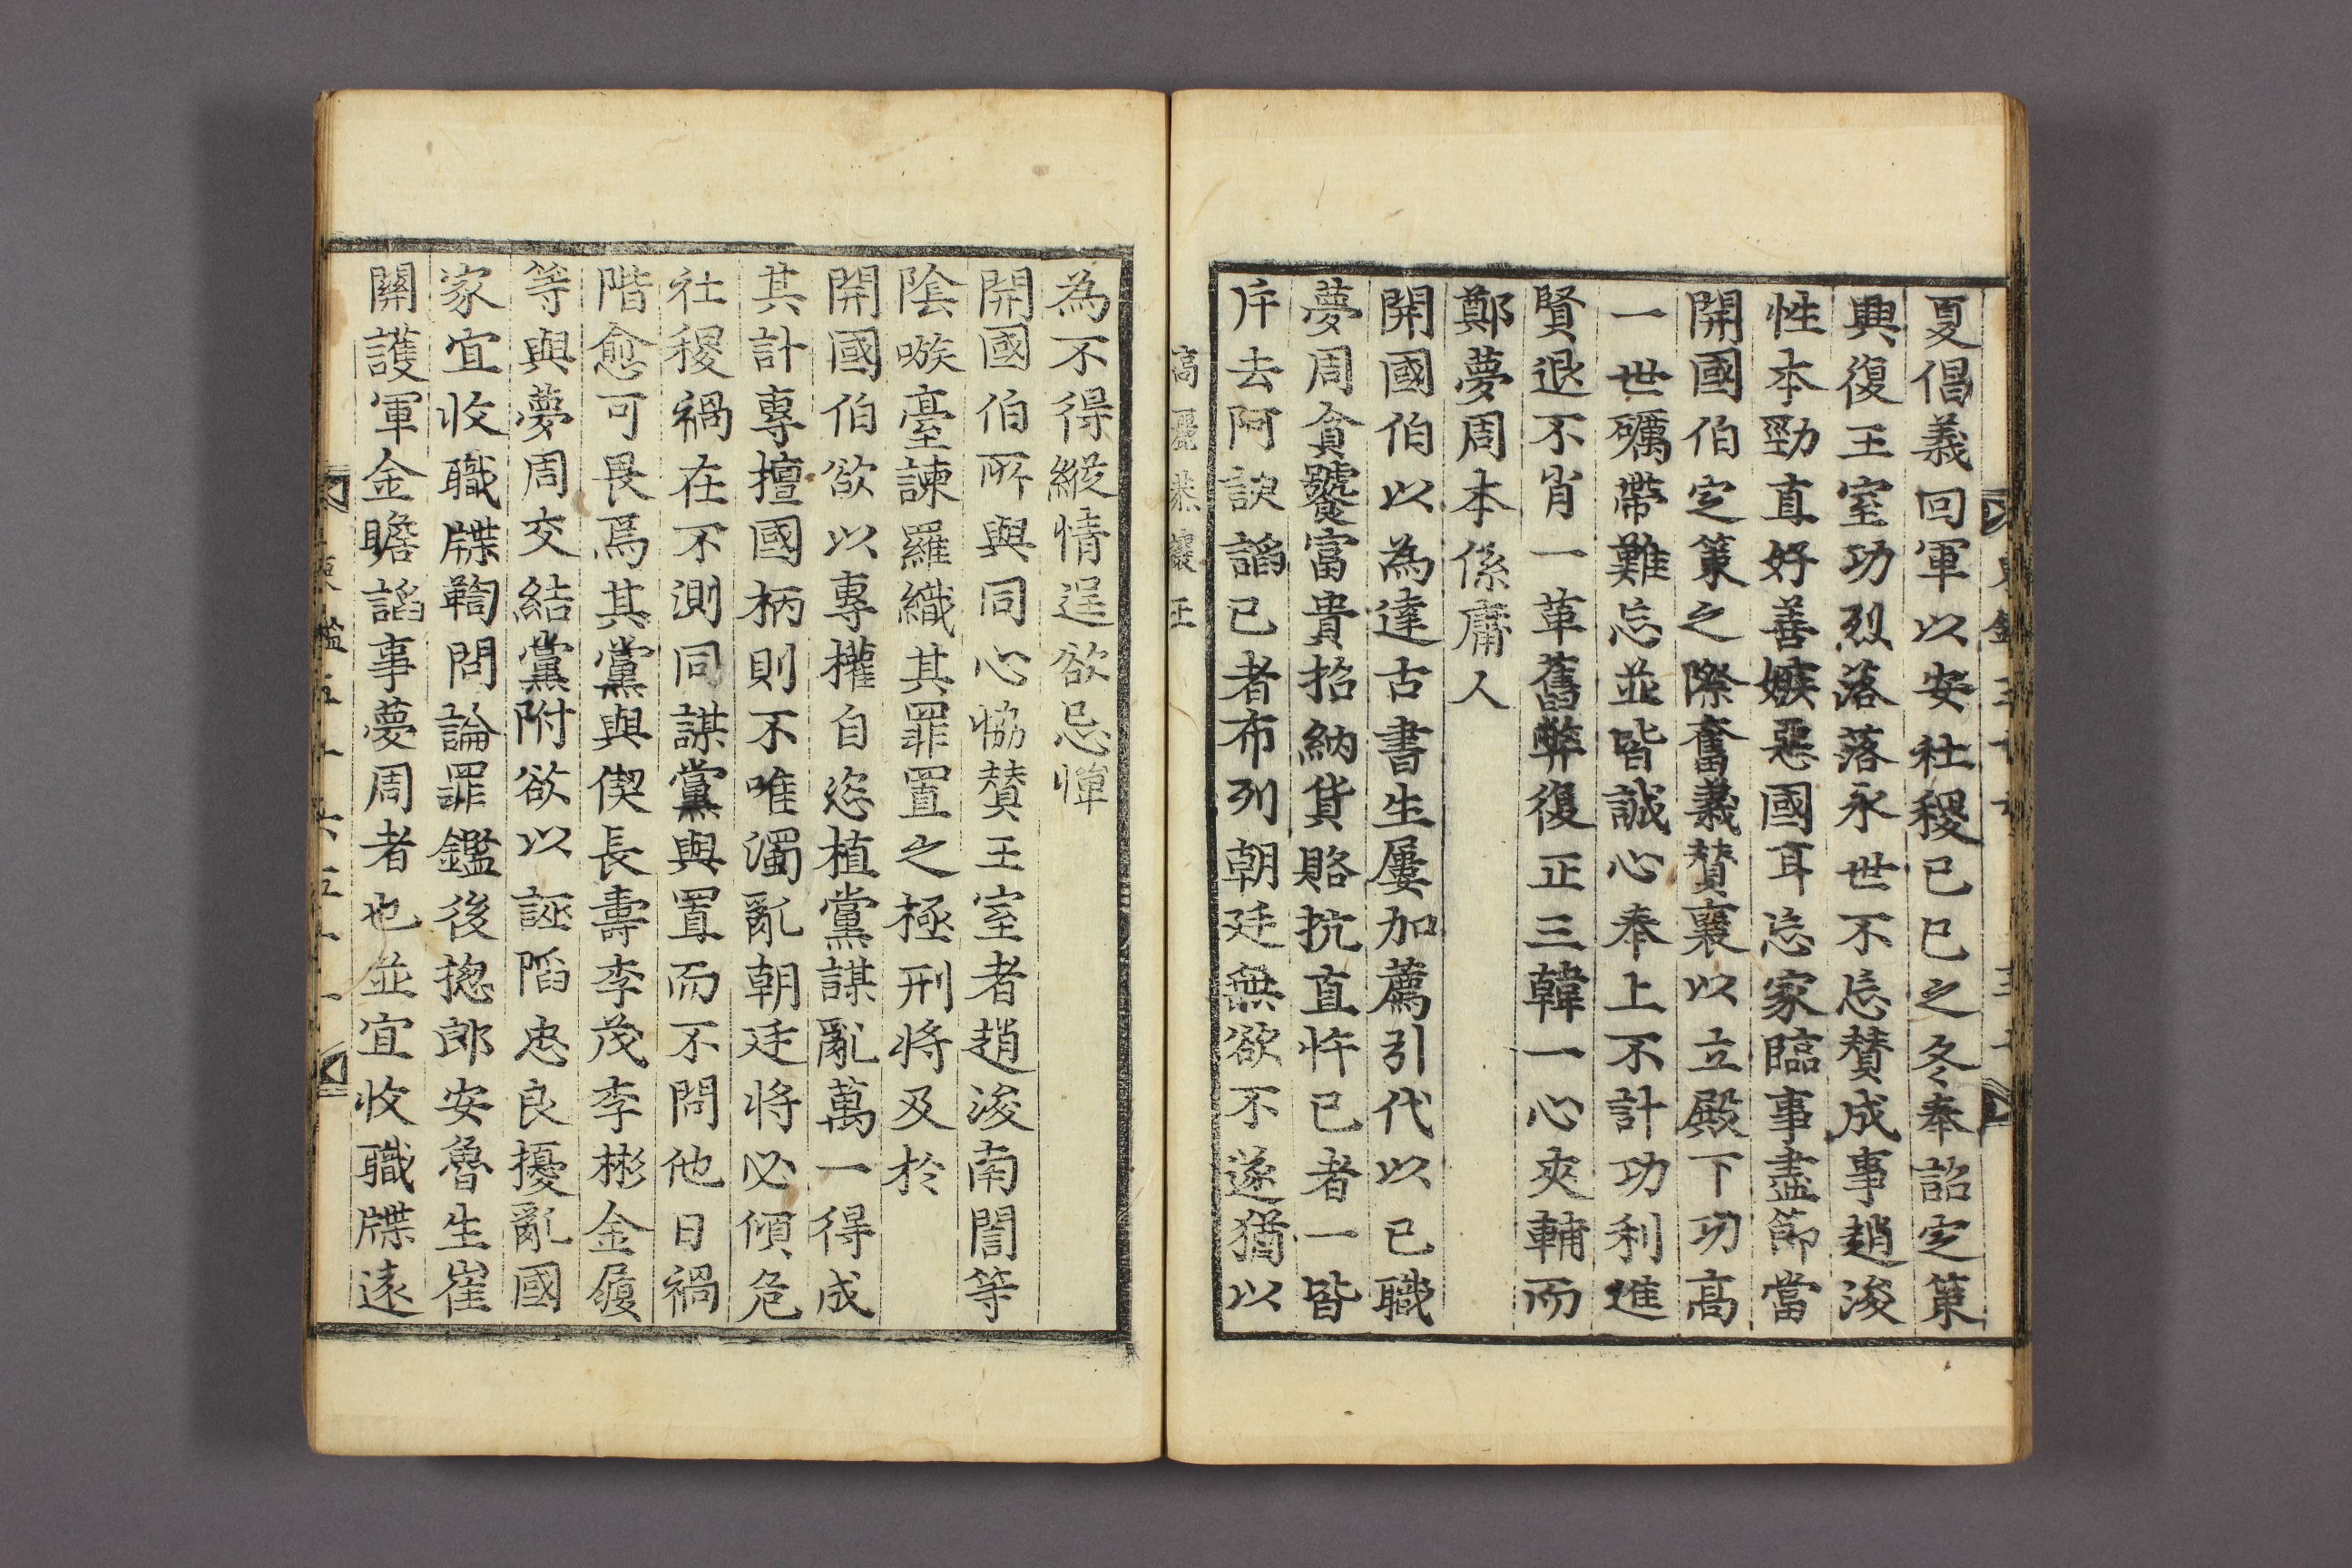 夏倡義回軍以安社稷己巳之冬奉詔定策
興復王室功烈落落永世不忘賛成事趙浚
性本勁直好善嫉惡國耳忘家臨事盡節當
開國伯定策之際奮義賛襄以立殿下功高
一世礪帶難忘並皆誠心奉上不計功利進
賢退不肖一革舊弊復正三韓一心夾輔而
鄭夢周本係庸人
開國伯以為達古書生屢加薦引代以已職
夢周貪饕富貴招納貨賂抗直忤已者一皆
斥去阿諛謟已者布列朝廷無欲不遂猶以
高麗恭讓王
為不得縱情逞欲忌憚
開國伯所與同心恊賛王室者趙浚南誾等
陰嗾臺諫羅織其罪置之極刑將及於
開國伯欲以專權自恣植黨謀亂萬一得成
其計專擅國柄則不唯濁亂朝廷將必傾危
社稷禍在不測同謀黨與置而不問他日禍
階愈可畏焉其黨與偰長壽李茂李彬金履
等與夢周交結黨附欲以誣陷忠良擾亂國
家宜收職牒鞫問論罪鑑後摠郎安魯生崔
關護軍金瞻謟事夢周者也並宜收職牒遠
東鑑五十六 五十一